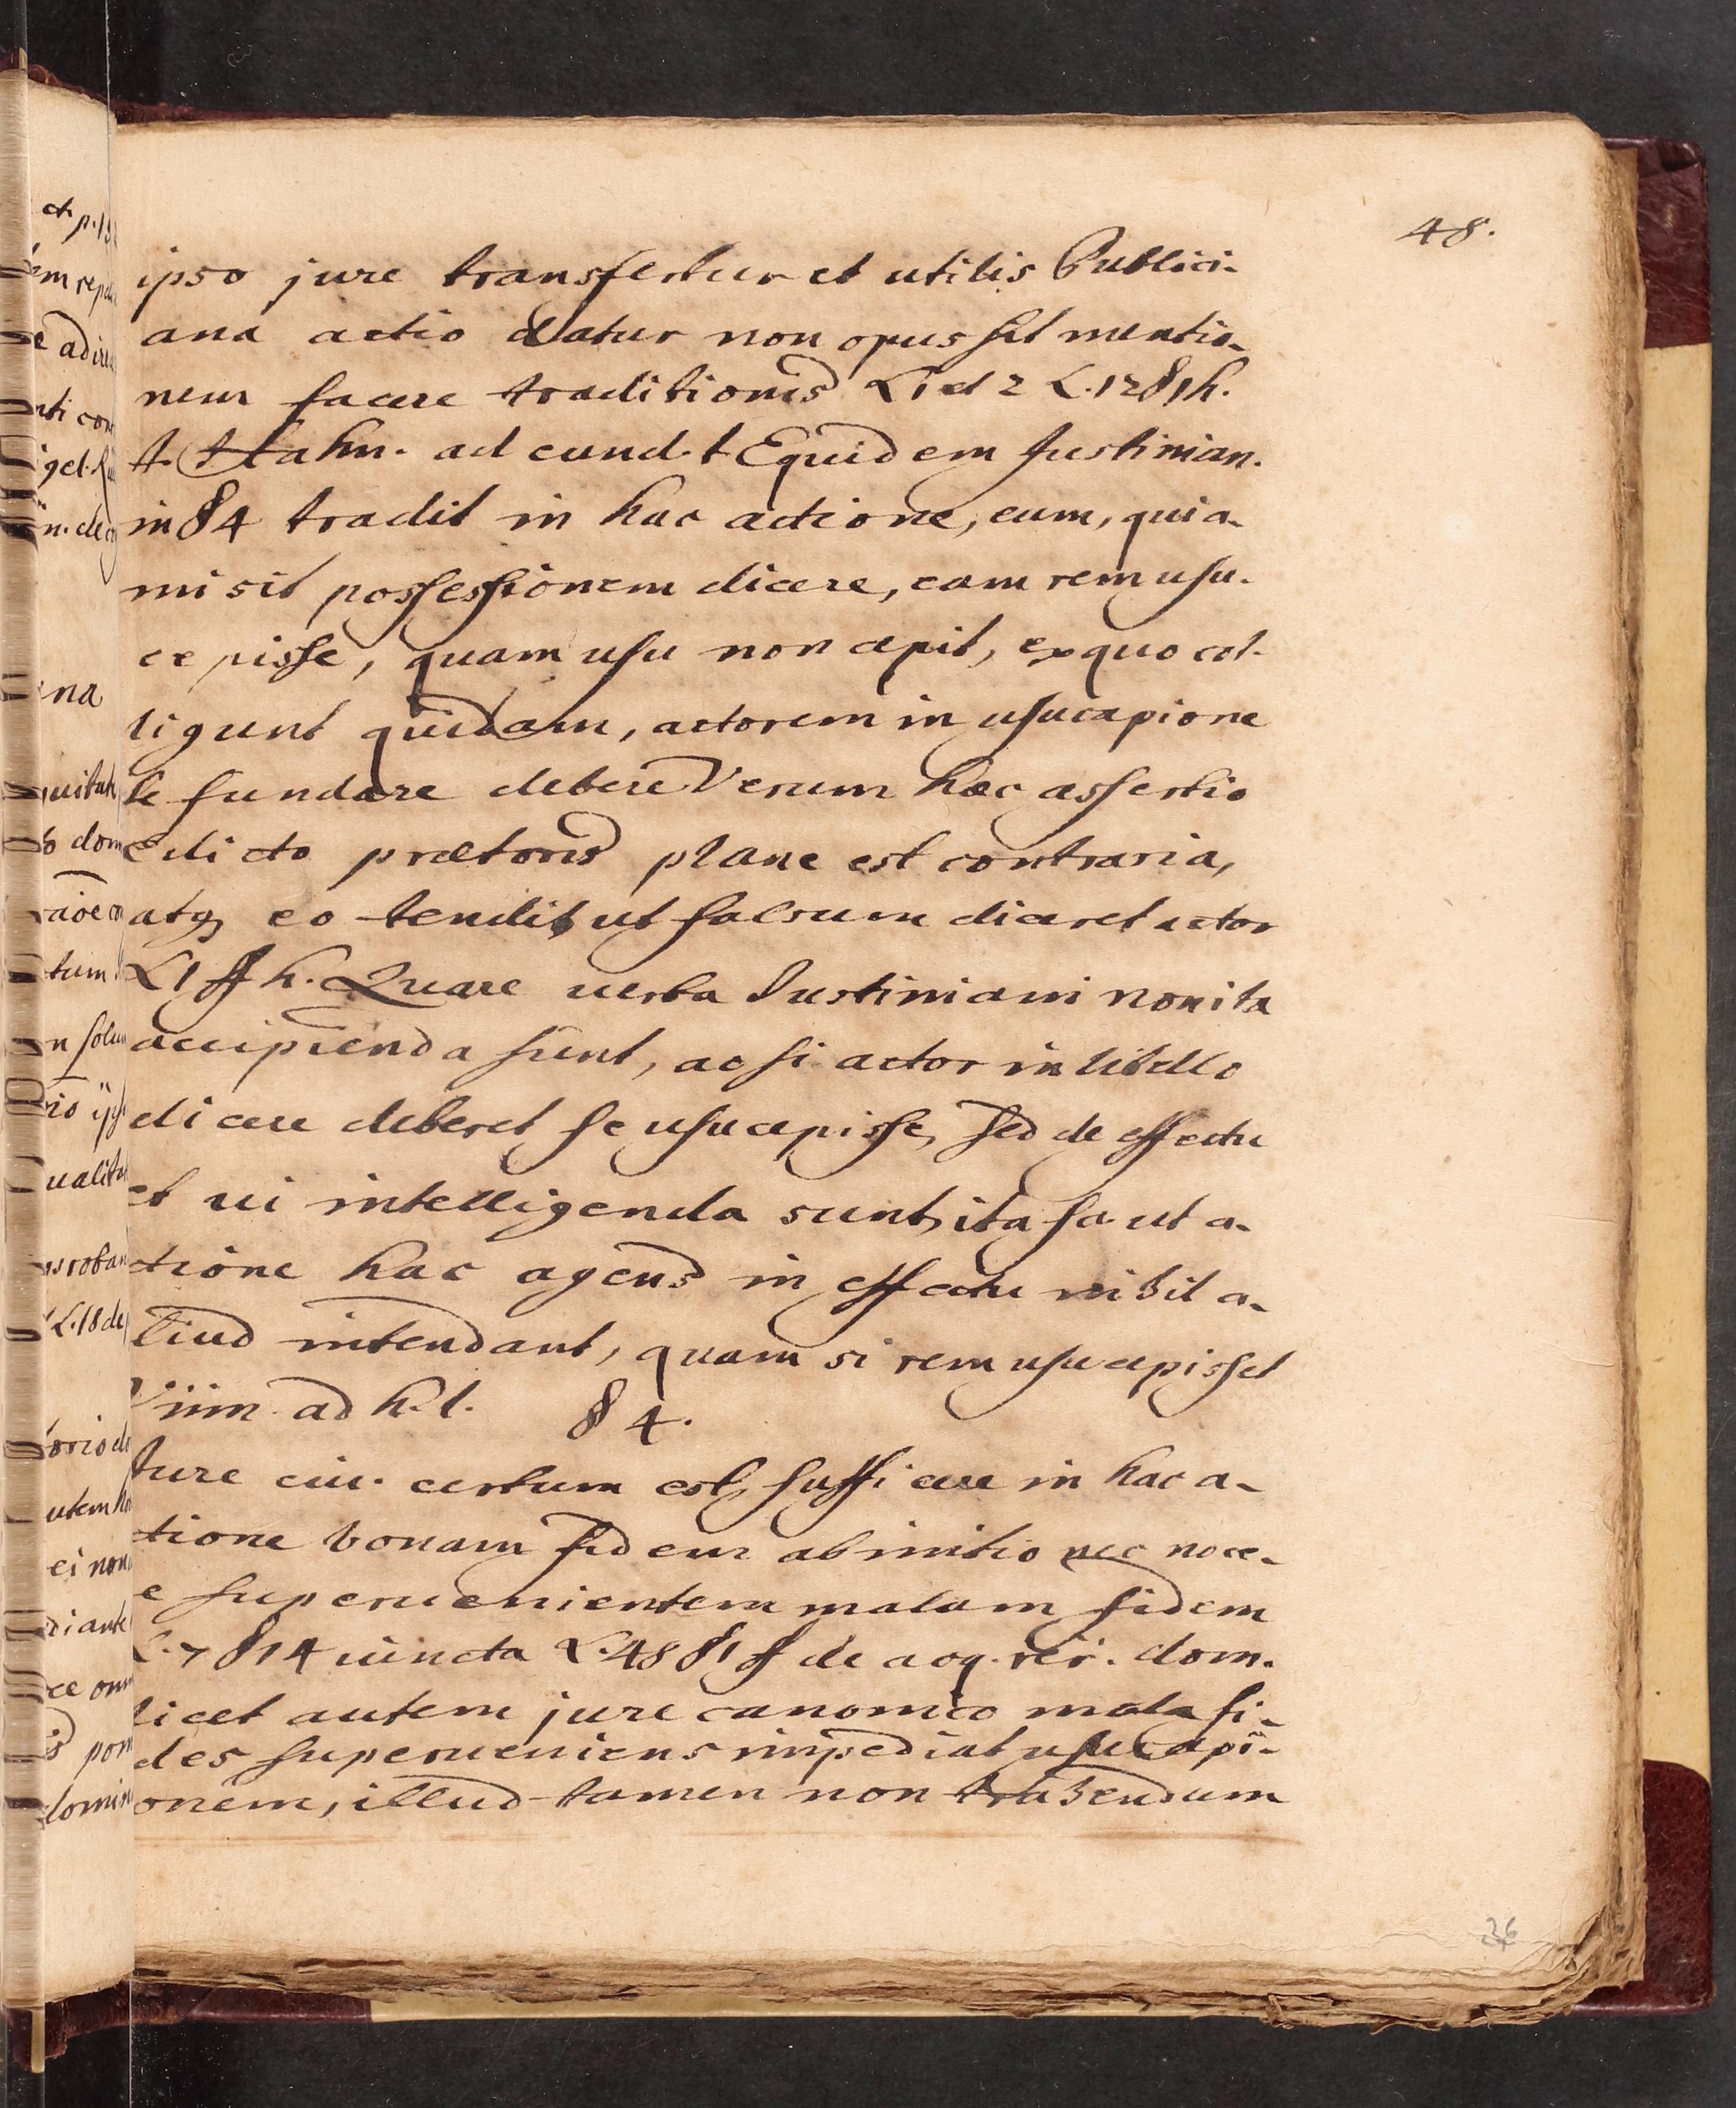 48.
ipso jure transfertur et utilis Publici-
ana actio datur non opus sit mentio-
nem facere traditionis L1 et 2 L. 12 §1 h.
t. Hahn. ad eund. t Equidem Justinian.
in §4 tradit in hac actione, eum, qui a-
misit possessionem dicere, eam rem usu-
cepisse, quam usu non cepit, ex quo col-
ligunt quidam, actorem in usucapione
se fundare debere Verum haec assertio
edicto praetoris plane est contraria,
atq eo tendit ut falsum diceret actor
L1 ff h. Quare uerba Justiniani non ita
accipienda sunt, ac si actor in libello
dicere deberet se usucepisse, sed de effectu
et ui intelligenda sunt, ita sc. ut a-
ctione hac agens in effectu nihil a-
liud intendant, quam si rem usucepisset
Vinn ad h. l. §4.
Jure ciu. certum est, sufficere in hac a-
ctione bonam fidem ab initio nec noce-
e superuenientem malam fidem
L. 7 §14 iuncta L. 48 §1 ff de aq. rer. dom.
licet autem jure canonico mala fi-
des superueniens impediat usucapi-
onem, illud tamen non trahendum
36